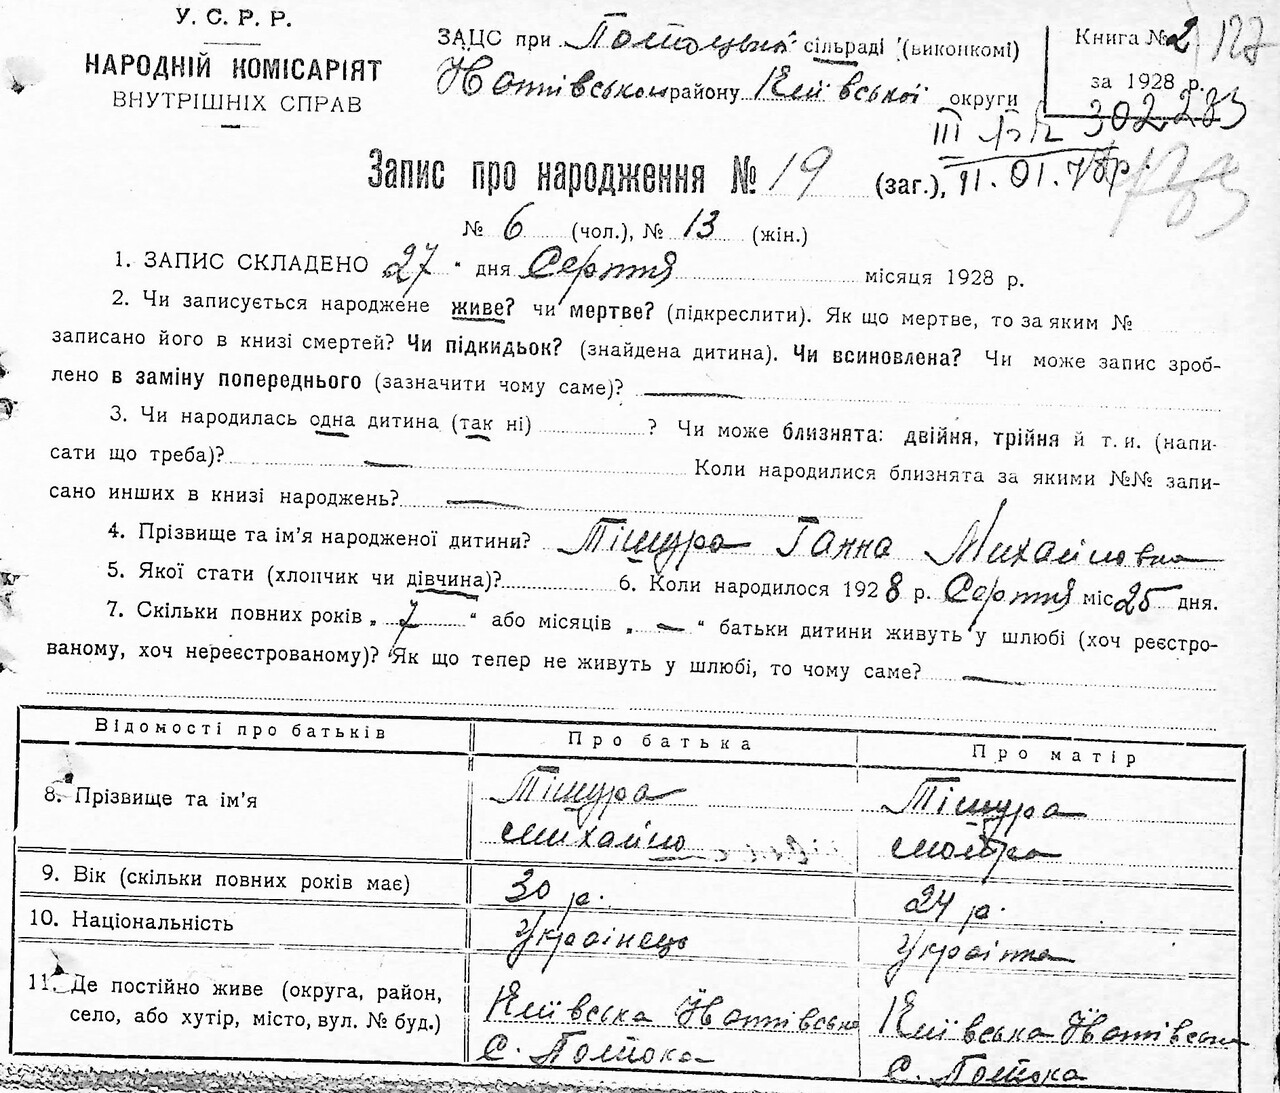 У. С. Р. Р.
НАРОДНІЙ КОМІСАРІЯТ
ВНУТРІШНІХ СПРАВ
ЗАЦС при Потоцькій сільраді (виконкомі)
району Київської округи
Книга № 2 127
за 1928 р.
302283
III
11.01.78р
Запис про народження № 19 (заг.),
№ 6 (чол.), № 13 (жін.)
1. ЗАПИС СКЛАДЕНО 27 " дня Серпня місяця 1928 р.
2. Чи записується народжене живе? чи мертве? (підкреслити). Як що мертве, то за яким №
записано його в книзі смертей? Чи підкидьок? (знайдена дитина). Чи всиновлена? Чи може запис зроб-
лено в заміну попереднього (зазначити чому саме)? —
3. Чи народилась одна дитина (так ні) ? Чи може близнята: двійня, трійня й т. и. (напи-
сати що треба)? — Коли народилися близнята за якими №№ запи-
сано инших в книзі народжень? —
4. Прізвище та ім'я народженої дитини? Тішура Ганна Михайловна
5. Якої стати (хлопчик чи дівчина)? 6. Коли народилося 1928 р. Серпня міс 25 дня.
7. Скільки повних років „ 7 " або місяців „ — " батьки дитини живуть у шлюбі (хоч реєстро-
ваному, хоч нереєстрованому)? Як що тепер не живуть у шлюбі, то чому саме? —
Відомості про батьків Про батька Про матір
8. Прізвище та ім'я Тішура Михайло Тішура Мотра
9. Вік (скільки повних років має) 30 р. 24 р.
10. Національність Українець Українка
11. Де постійно живе (округа, район,
село, або хутір, місто, вул. № буд.)
Київська
С. Потока
Київська
С. Потока